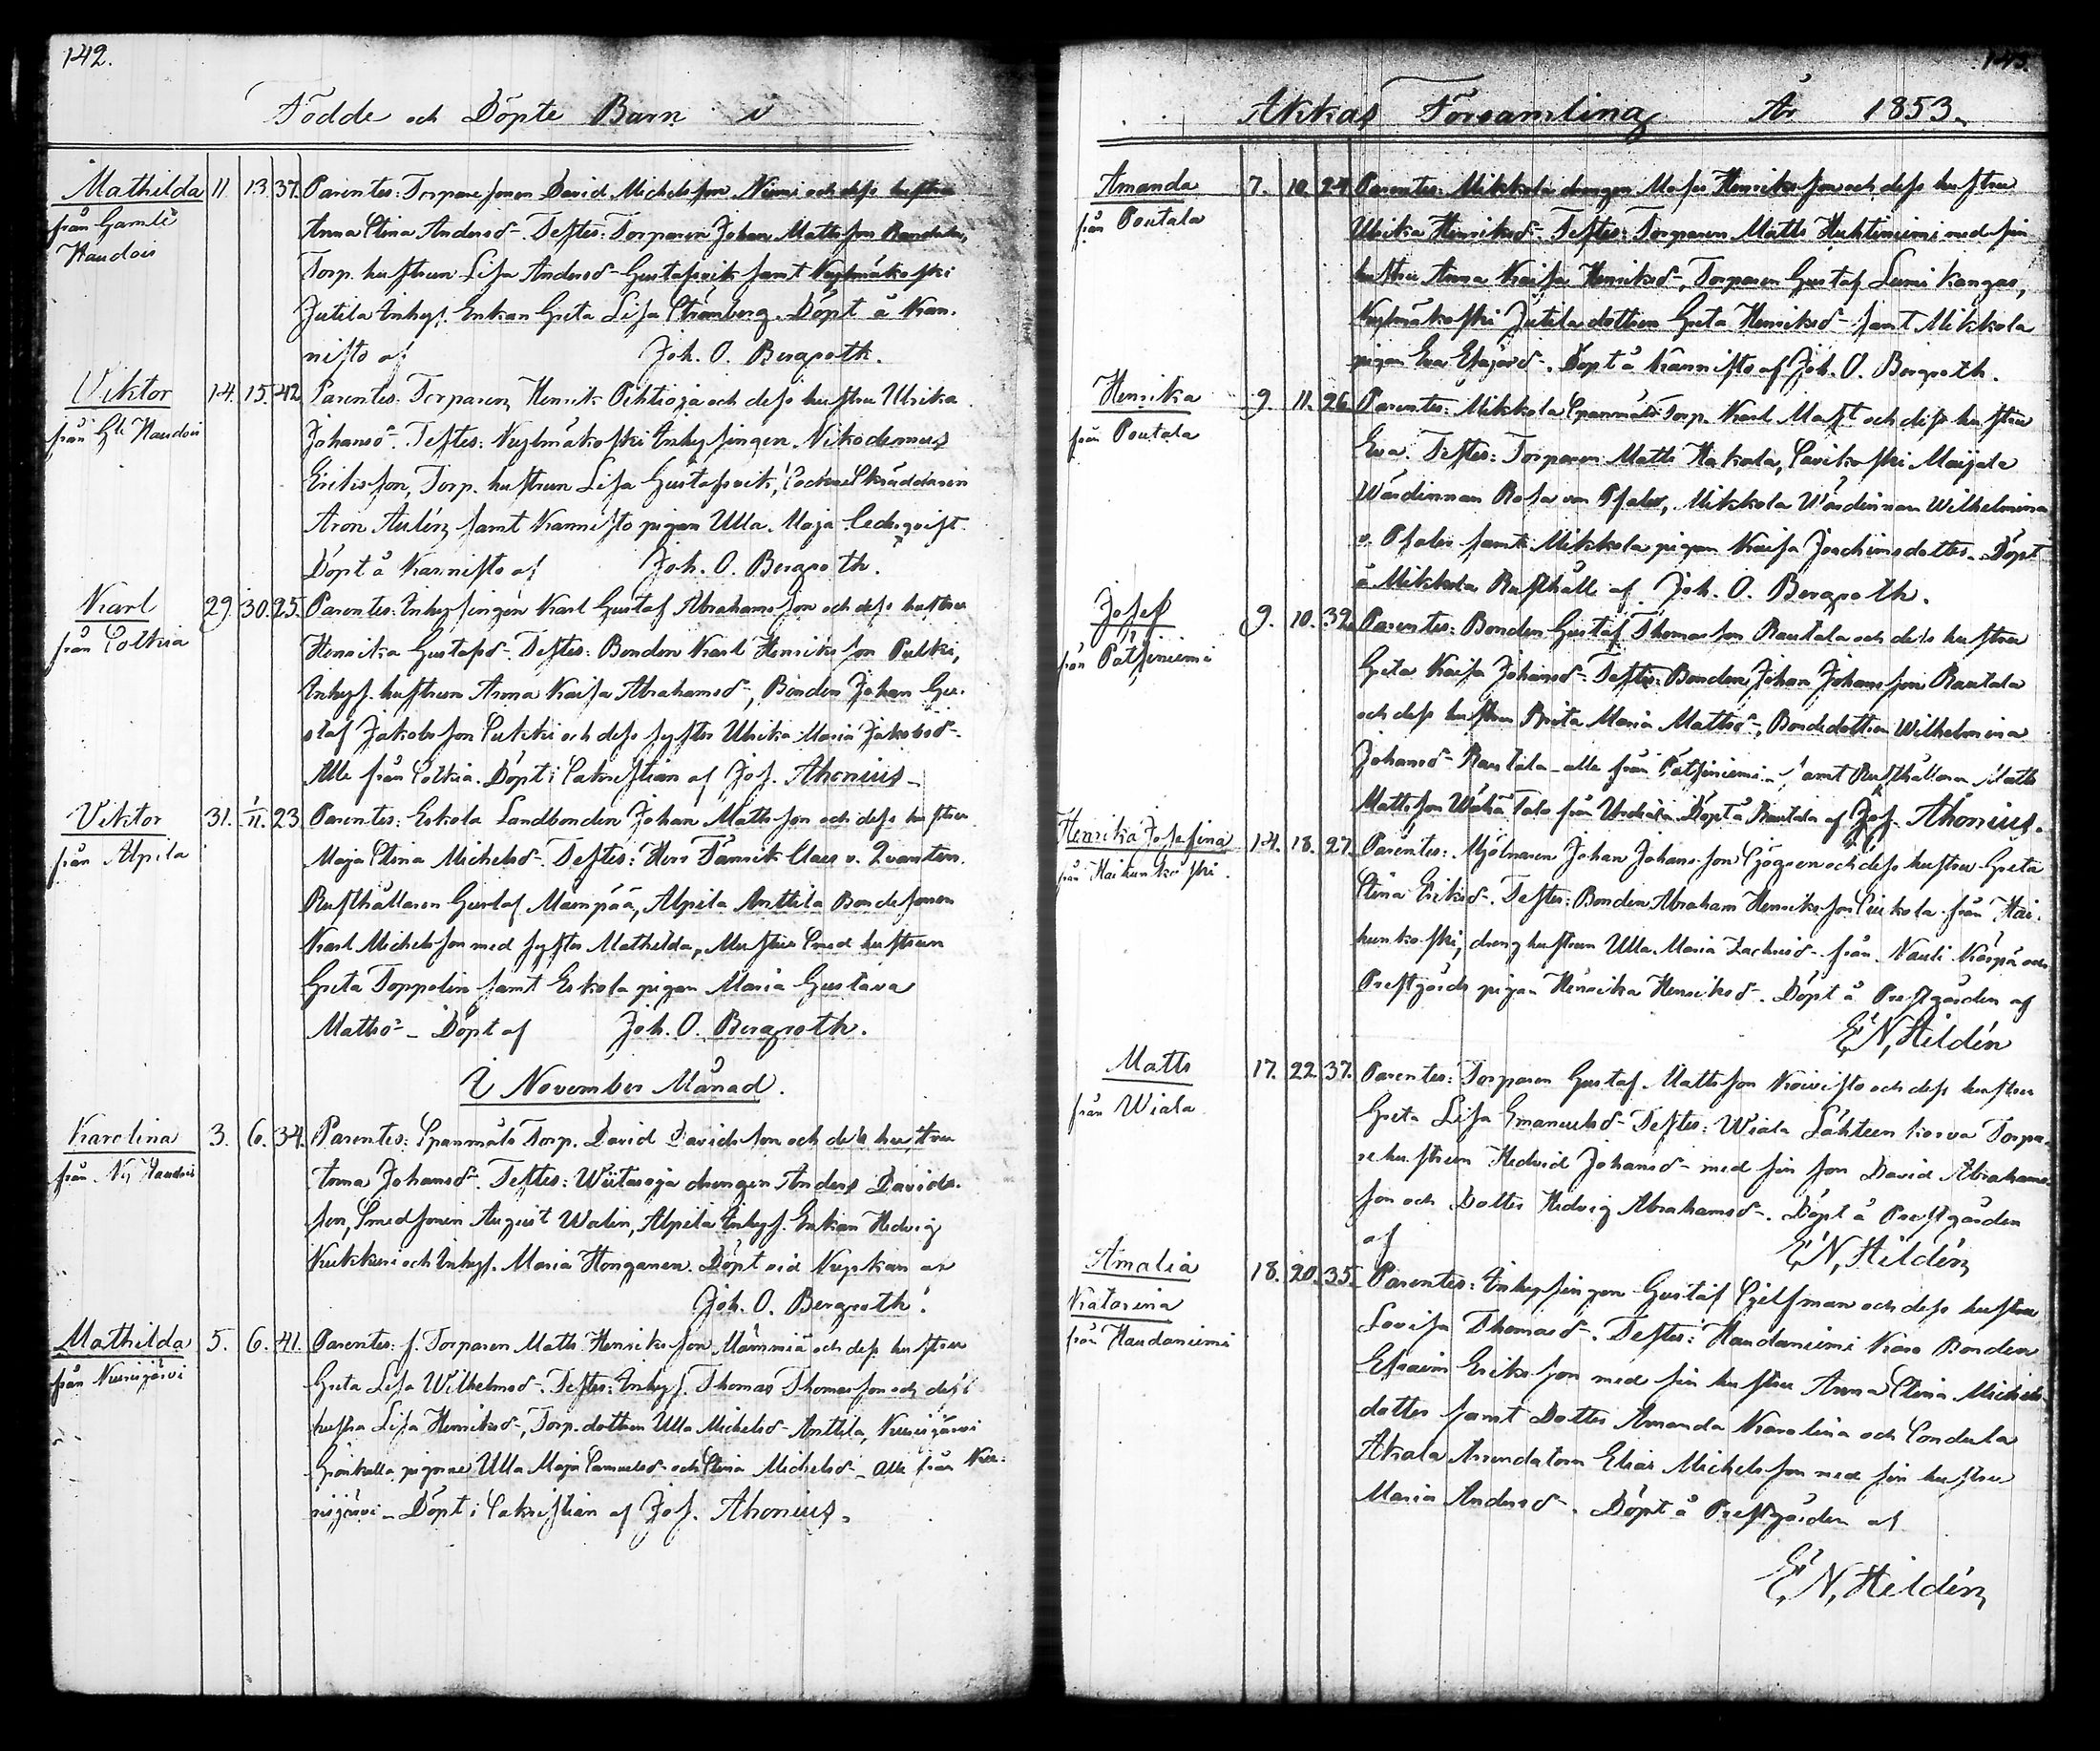 142.
Födde och Döpte Barn i
Mathilda 11. 13. 37. Parentes: Torparesonen David Michelsson Niemi och dess hustru
från Gamle Anna Stina Andersd-. Testes: Torparen Johan Mattsson Randala,
Haudois Torp. hustrun Lisa Andersd- Gustafsvik samt Kylmäkoski
Jutila Inhys. Enkan Greta Lisa Strömberg. Döpt å Kan-
nisto af Joh. O. Bergroth.
Viktor 14. 15. 42. Parentes: Torparen Henrik Pihtioja och dess hustru Ulrika
från Gle Haudois Johansd-. Testes: Kylmäkoski Inhysingen Nikodemus
Eriksson, Torp. hustrun Lisa Gustafsvik, Sockneskräddaren
Aron Aulén samt Kannisto pigan Ulla Maja Cederqvist.
Döpt å Kannisto af Joh. O. Bergroth.
Karl 29. 30. 25. Parentes: Inhysingen Karl Gustaf Abrahamsson och dess hustru
från Sotkia Henrika Gustafsd-. Testes: Bonden Karl Henriksson Pulkki,
Inhys. hustrun Anna Kaisa Abrahamsd-, Bonden Johan Gu-
staf Jakobsson Sukki och dess syster Ulrika Maria Jakobsd-.
Alle från Sotkia. Döpt i Sakristian af Jos. Ahonius.
Viktor 31. 1/11. 23. Parentes: Eskola Landbonden Johan Mattsson och dess hustru
från Alpila Maja Stina Michelsd-. Testes: Herr Fänrik Claes v. Qvanten.
Rusthållaren Gustaf Mainpää, Alpila Anttila Bondesonen
Karl Michelsson med syster Mathilda, Smed hustrun
Greta Toppolin samt Eskola pigan Maria Gustava
Mattsd- Döpt af Joh. O. Bergroth.
I November Månad.
Karolina 3. 6. 34. Parentes: Spanmåls Torp. David Davidsson och dess hustru
från Ny Haudois Anna Johansd-. Testes: Wiitasoja drengen Anders Davids-
son, Smedsonen August Walin, Alpila Inhys. Enkan Hedvig
Kukkuri och Inhys. Maria Honganen. Döpt vid Kyrkan af
Joh. O. Bergroth.
Mathilda 5. 6. 41. Parentes: f. Torparen Matts Henriksson Mämmiä och dess hustru
från Kurisjärvi Greta Lisa Wilhelmsd-. Testes: Inhys. Thomas Thomasson och dess
hustru Lisa Henriksd-, Torp. dottren Ulla Michelsd- Anttila, Kurisjärvi
pigorne Ulla Maja Samuelsd- och Stina Michelsd- alle från Ku-
risjärvi. Döpt i Sakristian af Jos. Ahonius.
143.
Akkas Församling År 1853.
Amanda 7. 10. 24. Parentes: Mikkola drengen Moses Henriksson och dess hustru
från Poutala Ulrika Henriksd-. Testes: Torparen Matts Huhtiniemi med sin
hustru Anna Kaisa Henriksd-, Torparen Gustaf Lumikangas,
Kylmäkoski Jutila dottren Greta Henriksd- samt Mikkola
pigan Eva Esajasd-. Döpt å Kannisto af Joh. O. Bergroth.
Henrika 9. 11. 26. Parentes: Mikkola Spanmåls Torp. Karl Mast och dess hustru
från Poutala Eva. Testes: Torparen Matts Hakala, Savikoski Maijala
Wärdinnan Rosa von Pfaler, Mikkola Wärdinnan Wilhelmina
v. Pfaler samt Mikkola pigan Kaisa Joachimsdotter. Döpt
å Mikkola Rusthåll af Joh. O. Bergroth.
Josef 9. 10. 39. Parentes: Bonden Gustaf Thomasson Rautala och dess hustru
från Pätsiniemi Greta Kaisa Johansd-. Testes: Bonden Johan Johansson Rautala
och dess hustru Brita Maria Mattsd-, Bondedottren Wilhelmina
Johansd- Rautala - alle från Pätsiniemi - samt Rusthållaren Matts
Mattsson Wähä Talo från Urdiala. Döpt å Rautala af Jos. Ahonius.
Henrika Josefina 14. 18. 27. Parentes: Mjölnaren Johan Johansson Sjögren och dess hustru Greta
från Haihunkoski. Stina Eriksd-. Testes: Bonden Abraham Henriksson Suikola från Hai-
hunkoski, dreng hustrun Ulla Maria Zachrisd- från Nauli Kärpä och
Prestgårds pigan Henrika Henriksd-. Döpt å Prestgården af
E. N. Hildén
Matts 17. 22. 37. Parentes: Torparen Gustaf Mattsson Koivisto och dess hustru
från Wiala Greta Lisa Emanuelsd-. Testes: Wiala Lähteenkorva Torpa-
rehustrun Hedvid Johansd- med sin son David Abrahams-
son och Dotter Hedvig Abrahamsd-. Döpt å Prestgården
af E. N. Hildén
Amalia 18. 20. 35. Parentes: Inhysingen Gustaf Sjelfman och dess hustru
Katarina Lovisa Thomasd-. Testes: Haudaniemi Karo Bonden
från Haudaniemi Efraim Eriksson med sin hustru Anna Stina Michels-
dotter samt Dotter Amanda Karolina och Sondula
Ahala Arrendatorn Elias Michelsson med sin hustru
Maria Andersd-. Döpt å Prestgården af
E. N. Hildén